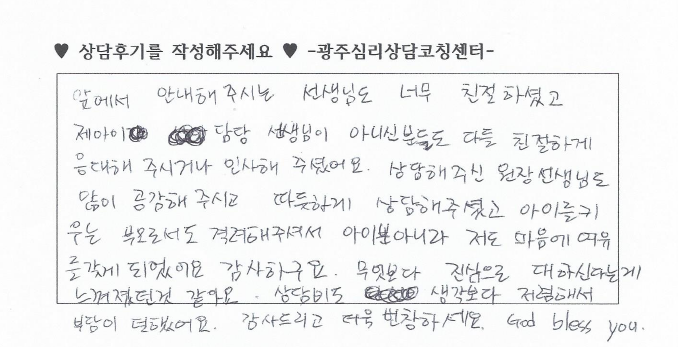 ♥ 상담후기를 작성해주세요 ♥ -광주심리상담코칭센터-
앞에서 안내해 주시는 선생님도 너무 친절하셨고
제아이 담당 선생님이 아니신분들도 다들 친절하게
응대해 주시거나 인사해 주셨어요. 상담해주신 원장선생님도
많이 공감해 주시고 따듯하게 상담해주셨고 아이를키
우는 부모로서도 격려해주셔서 아이뿐아니라 저도 마음에 여유
를갖게 되었어요 감사하구요. 무엇보다 진심으로 대하신다는게
느껴졌던것 같아요. 상담비도 생각보다 저렴해서
부담이 덜했어요. 감사드리고 더욱 번창하세요. God bless you.